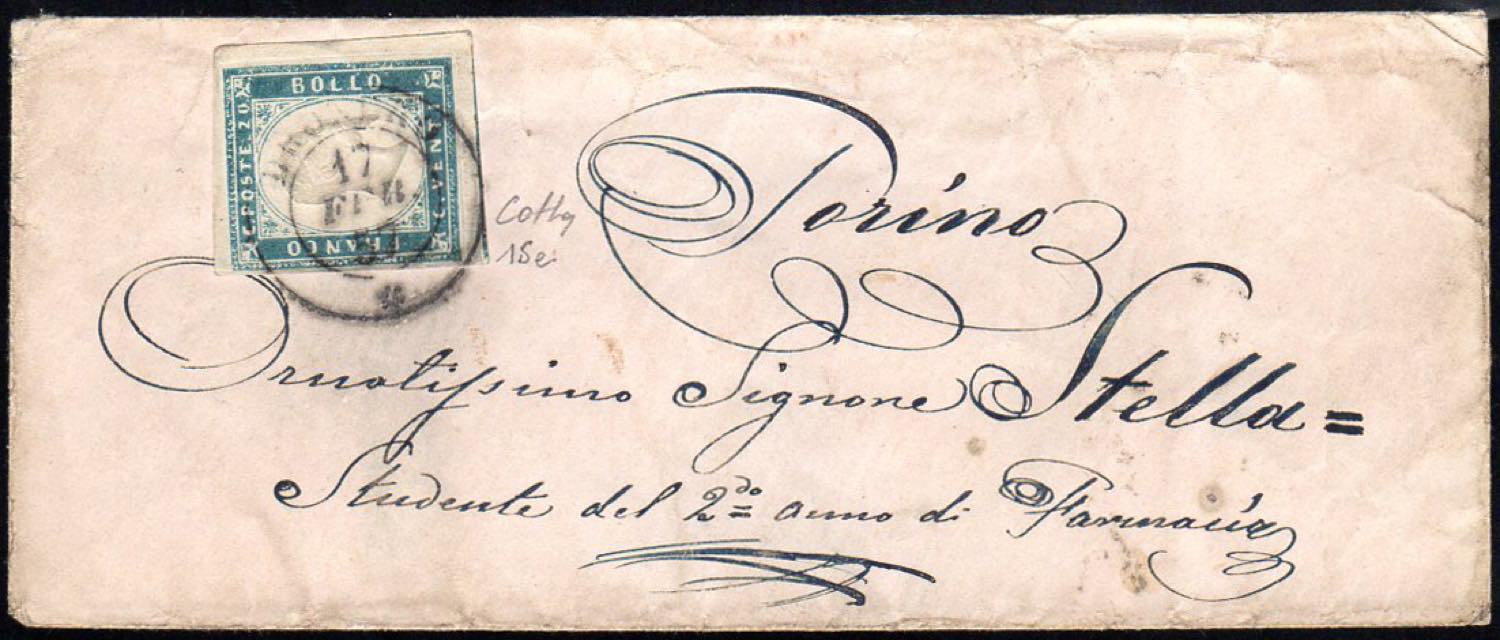 BOLLO
C. POSTE 20
C. VENTI
FRANCO
17
FEB
57
Cotta
15e
Torino
Ornatissimo Signore Stella=
Studente del 2do anno di Farmacia